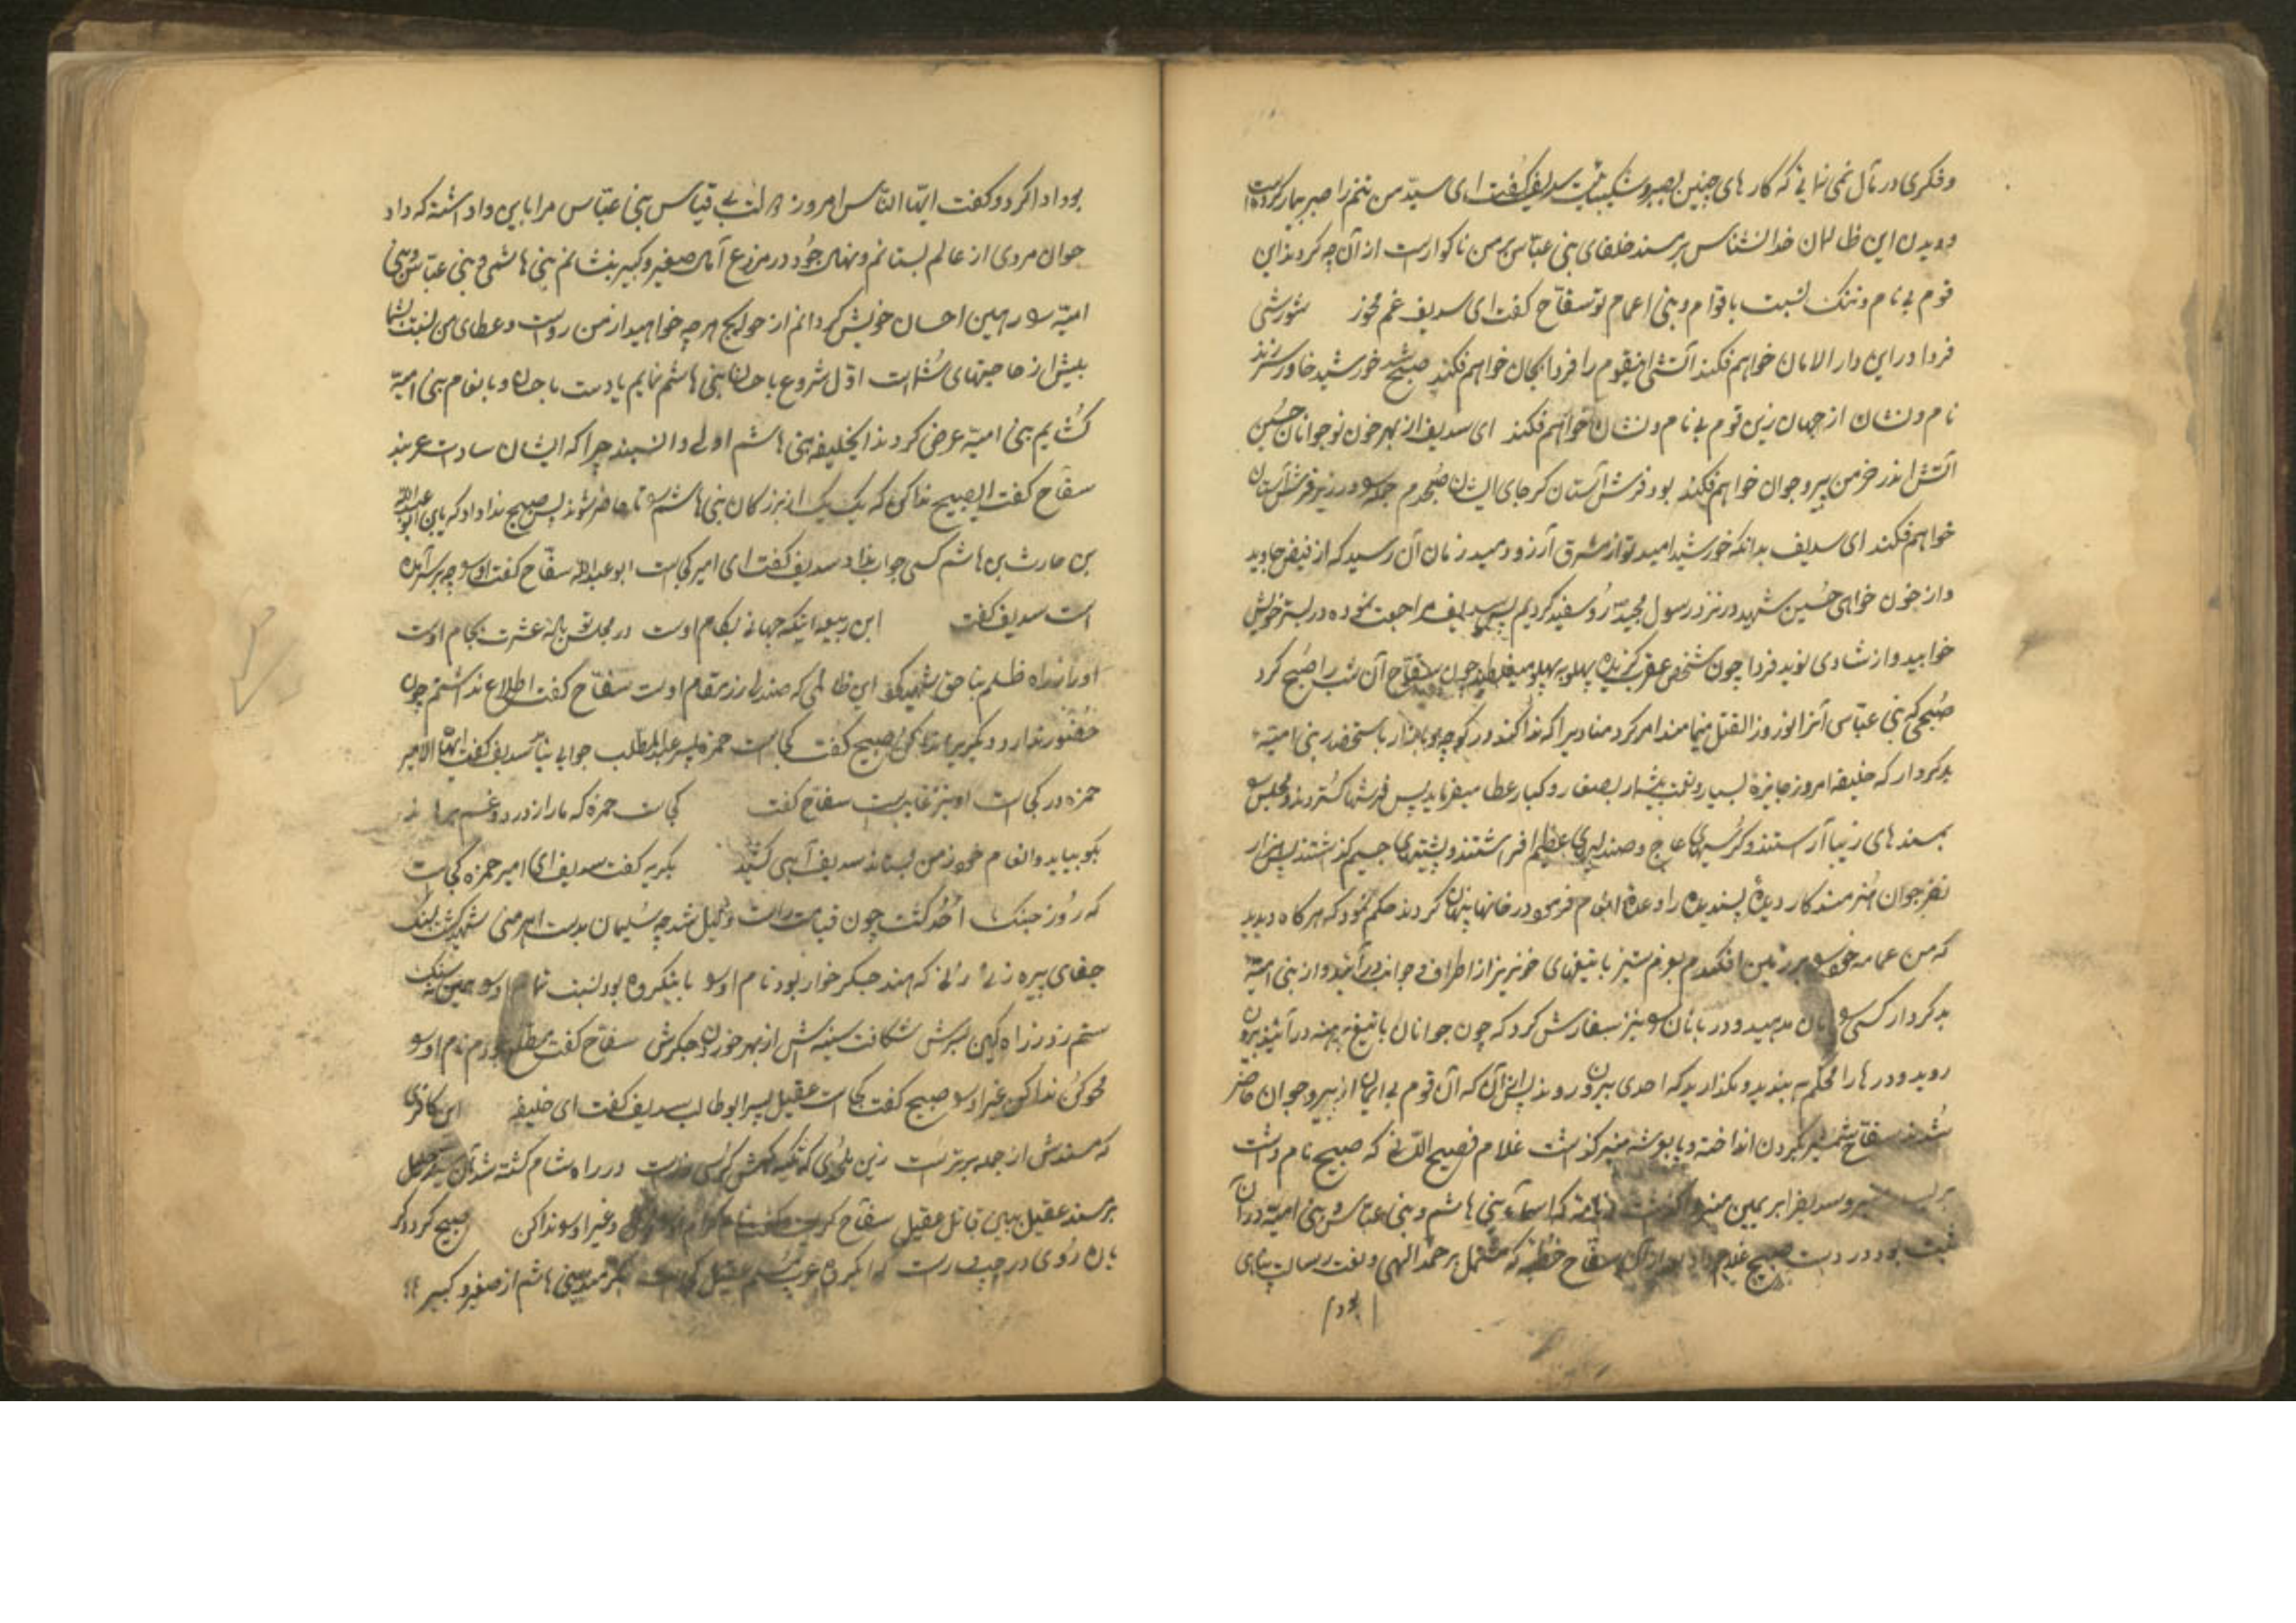 و فکری در مآل نمی نمائی که کار های چنین بصبر و شکیبائیست سدیف گفت ای سید من تنم را صبر بیمار کرده است
و دیدن این ظالمان خدا نشناس بر مسند خلفای بنی عباس بر من ناگوار است از آن چه کردند این
قوم بی نام و ننگ نسبت باقوام و بنی اعمام تو سفاح گفت ای سدیف غم مخور شورشی
فردا در این دار الامان خواهم فکند آتشی اینقوم را فردا بجان خواهم فکند صبح شد خورشید خاور سر زند
نام و نشان از جهان زین قوم بی نام و نشان خواهم فکند ای سدیف از بهر خون نوجوانان حسین
آتش اندر خرمن پیر و جوان خواهم فکند بود فرش آستان گر جای ایشان صبحدم جمله را در زیر فرش آستان
خواهم فکند ای سدیف بدانکه خورشید امید تو از مشرق آرزو دمید زمان آن رسید که از فیض جاوید
و از خون خواهی حسین شهید در نزد رسول مجید رو سفید گردیم پس سدیف مراجعت نموده در بستر خویش
خوابید و از شادی نوید فردا چون شخص عقرب گزیده پهلو به پهلو میغلطید چون سفاح آن شب را صبح کرد
صبحی که بنی عباس آنرا نوروز القتل مینامند امر کرد منادیرا که ندا کند در کوچه و بازار باستحضار بنی امیه
بدکردار که خلیفه امروز جایزه بسیار و نعمت بیشمار بصغار و کبار عطا میفرماید پس فرشها گستردند و مجلس را
بمسند های زیبا آراستند و کرسیهای عاج و صندلیهای عظیم افراشتند و پشتیهای جسیم گذاشتند پس هزار
نفر جوان هنرمند کار دیدۀ پسندیده را وعدۀ انعام فرمود در خانها پنهان کردند حکم نمود که هر گاه دیدید
که من عمامه خود را بر زمین افکندم بعزم ستیز با تیغهای خونریز از اطراف و جوانب در آئید و از بنی امیه
بدکردار کسی را امان مدهید و دربانان را نیز سفارش کرد که چون جوانان با تیغ برهنه در آیند بیرون
روید و درها را محکم به بندید و مگذارید که احدی بیرون روند پس از آن که آن قوم بی ایمان از پیر و جوان حاضر
شدند سفاح شمشیر بگردن انداخته و پا بپوشه منبر گذاشت غلام فصیح اللسانی که صبیح نام داشت
و سدیف را بر یمین منبر که اسماء بنی هاشم و بنی عباس و بنی امیه در آن
ثبت بود در دست صبیح غلام داد بعد از آن سفاح خطبه که مشتمل بر حمد الهی و نعت رسالت پناهی
بود ا
بود ادا کرد و گفت ایها الناس امروز بی قیاس بنی عباس مرا باین واداشته که داد
جوان مردی از عالم بستانم و نهال جود در مزرع آمال صغیر و کبیر بنشانم بنی هاشم و بنی عباس و بنی
امیه را رهین احسان خویش گردانم از حوایج هر چه خواهید از من رواست و عطای من نسبت بشما
بیش از حاجتهای شماست اول شروع باحسان بنی هاشم نمایم یا دست باحسان و بانعام بنی امیه
گشایم بنی امیه عرض کردند ایخلیفه بنی هاشم اولی و انسبند چرا که ایشان سادات عربند
سفاح گفت ای صبیح ندا کن که یک یک از بزرگان بنی هاشم را تا حاضر شوند پس صبیح ندا داد که یا بن ابو عبدالله
بن حارث بن هاشم کسی جواب نداد سدیف گفت ای امیر کجاست ابو عبدالله سفاح گفت او را چه بر سر آمده
است سدیف گفت ابن ربیعه اینکه جهانی بکام اوست در مجلس عشرت بجام اوست
او را ز راه ظلم بنا حق شهید کرد این ظالمی که صندلی زر مقام اوست سفاح گفت اطلاع نداشتم چون
حضور ندارد دیگریرا ندا کن صبیح گفت کجاست حمزه پسر عبدالمطلب جوابی نیامد سدیف گفت ایها الامیر
حمزه در کجاست او نیز غایبست سفاح گفت کجاست حمزه که ما را ز درد و غم برهاند
بگو بیاید و انعام خود ز من بستاند سدیف آهی کشید بگریه گفت سدیف ای امیر حمزه کجاست
که روز جنگ احد گشت چون قیامت راست ذلیل شد چه سلیمان بدست اهرمنی شهید گشت بسنگ
جفای پیره زنی زنی که هند جگر خوار بود نام او را
ستم زد ز راه کین بسرش شکافت سینه اش از بهر خوردن جگرش سفاح گفت نام او را
محو کن ندا کن غیر او را صبیح گفت کجاست عقیل پسر ابوطالب سدیف گفت ای خلیفه این کافری
که مسندش از جمله برتر است زین ملحدی که تکیه گهش کرسی زر است در راه شام کشته شد آن سید جلیل
بر مسند عقیل ببین قاتل عقیل سفاح گفت و غیر او را ندا کن صبیح کرد دگر
بآن روی در چپ و راست که ای گروه عرب مسلم عقیل کجاست بنی هاشم از صغیر و کبیر